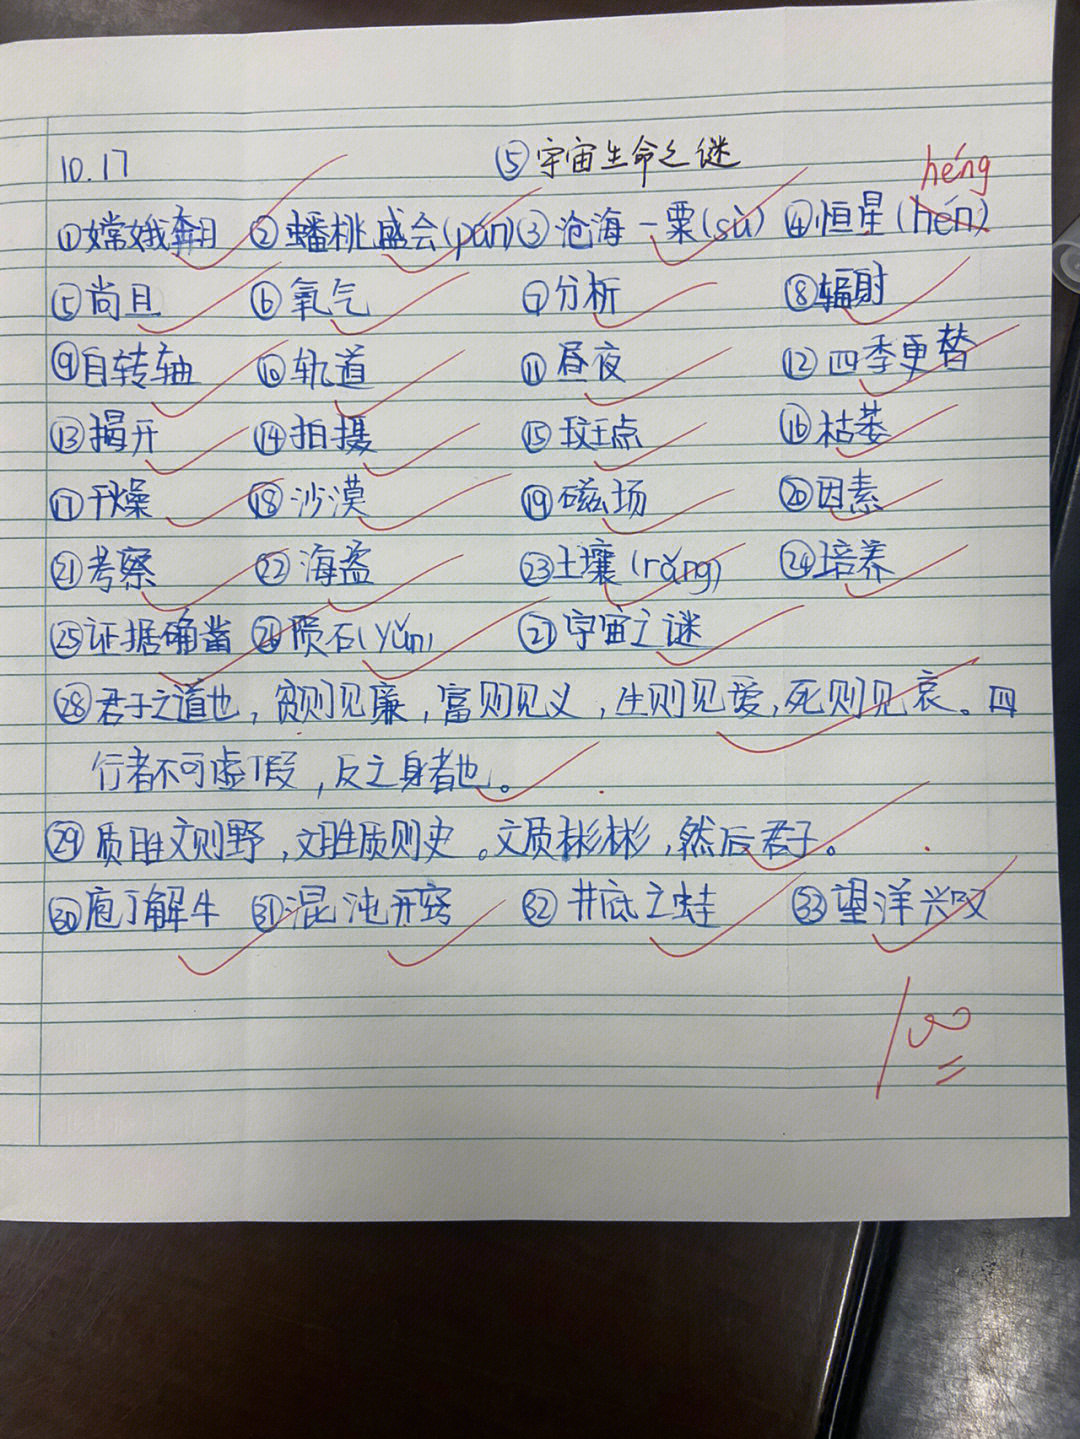 10.17 ⑤宇宙生命之谜
héng
①嫦娥奔月 ②蟠桃盛会(pán) ③沧海一粟(sù) ④恒星(hén)
⑤尚且 ⑥氧气 ⑦分析 ⑧辐射
⑨自转轴 ⑩轨道 ⑪昼夜 ⑫四季更替
⑬揭开 ⑭拍摄 ⑮斑点 ⑯枯萎
⑰干燥 ⑱沙漠 ⑲磁场 ⑳因素
㉑考察 ㉒海盗 ㉓土壤(rǎng) ㉔培养
㉕证据确凿 ㉖陨石(yǔn) ㉗宇宙之谜
㉘君子之道也，贫则见廉，富则见义，生则见爱，死则见哀。四
行者不可虚假，反之身者也。
㉙质胜文则野，文胜质则史。文质彬彬，然后君子。
㉚庖丁解牛 ㉛混沌开窍 ㉜井底之蛙 ㉝望洋兴叹
100